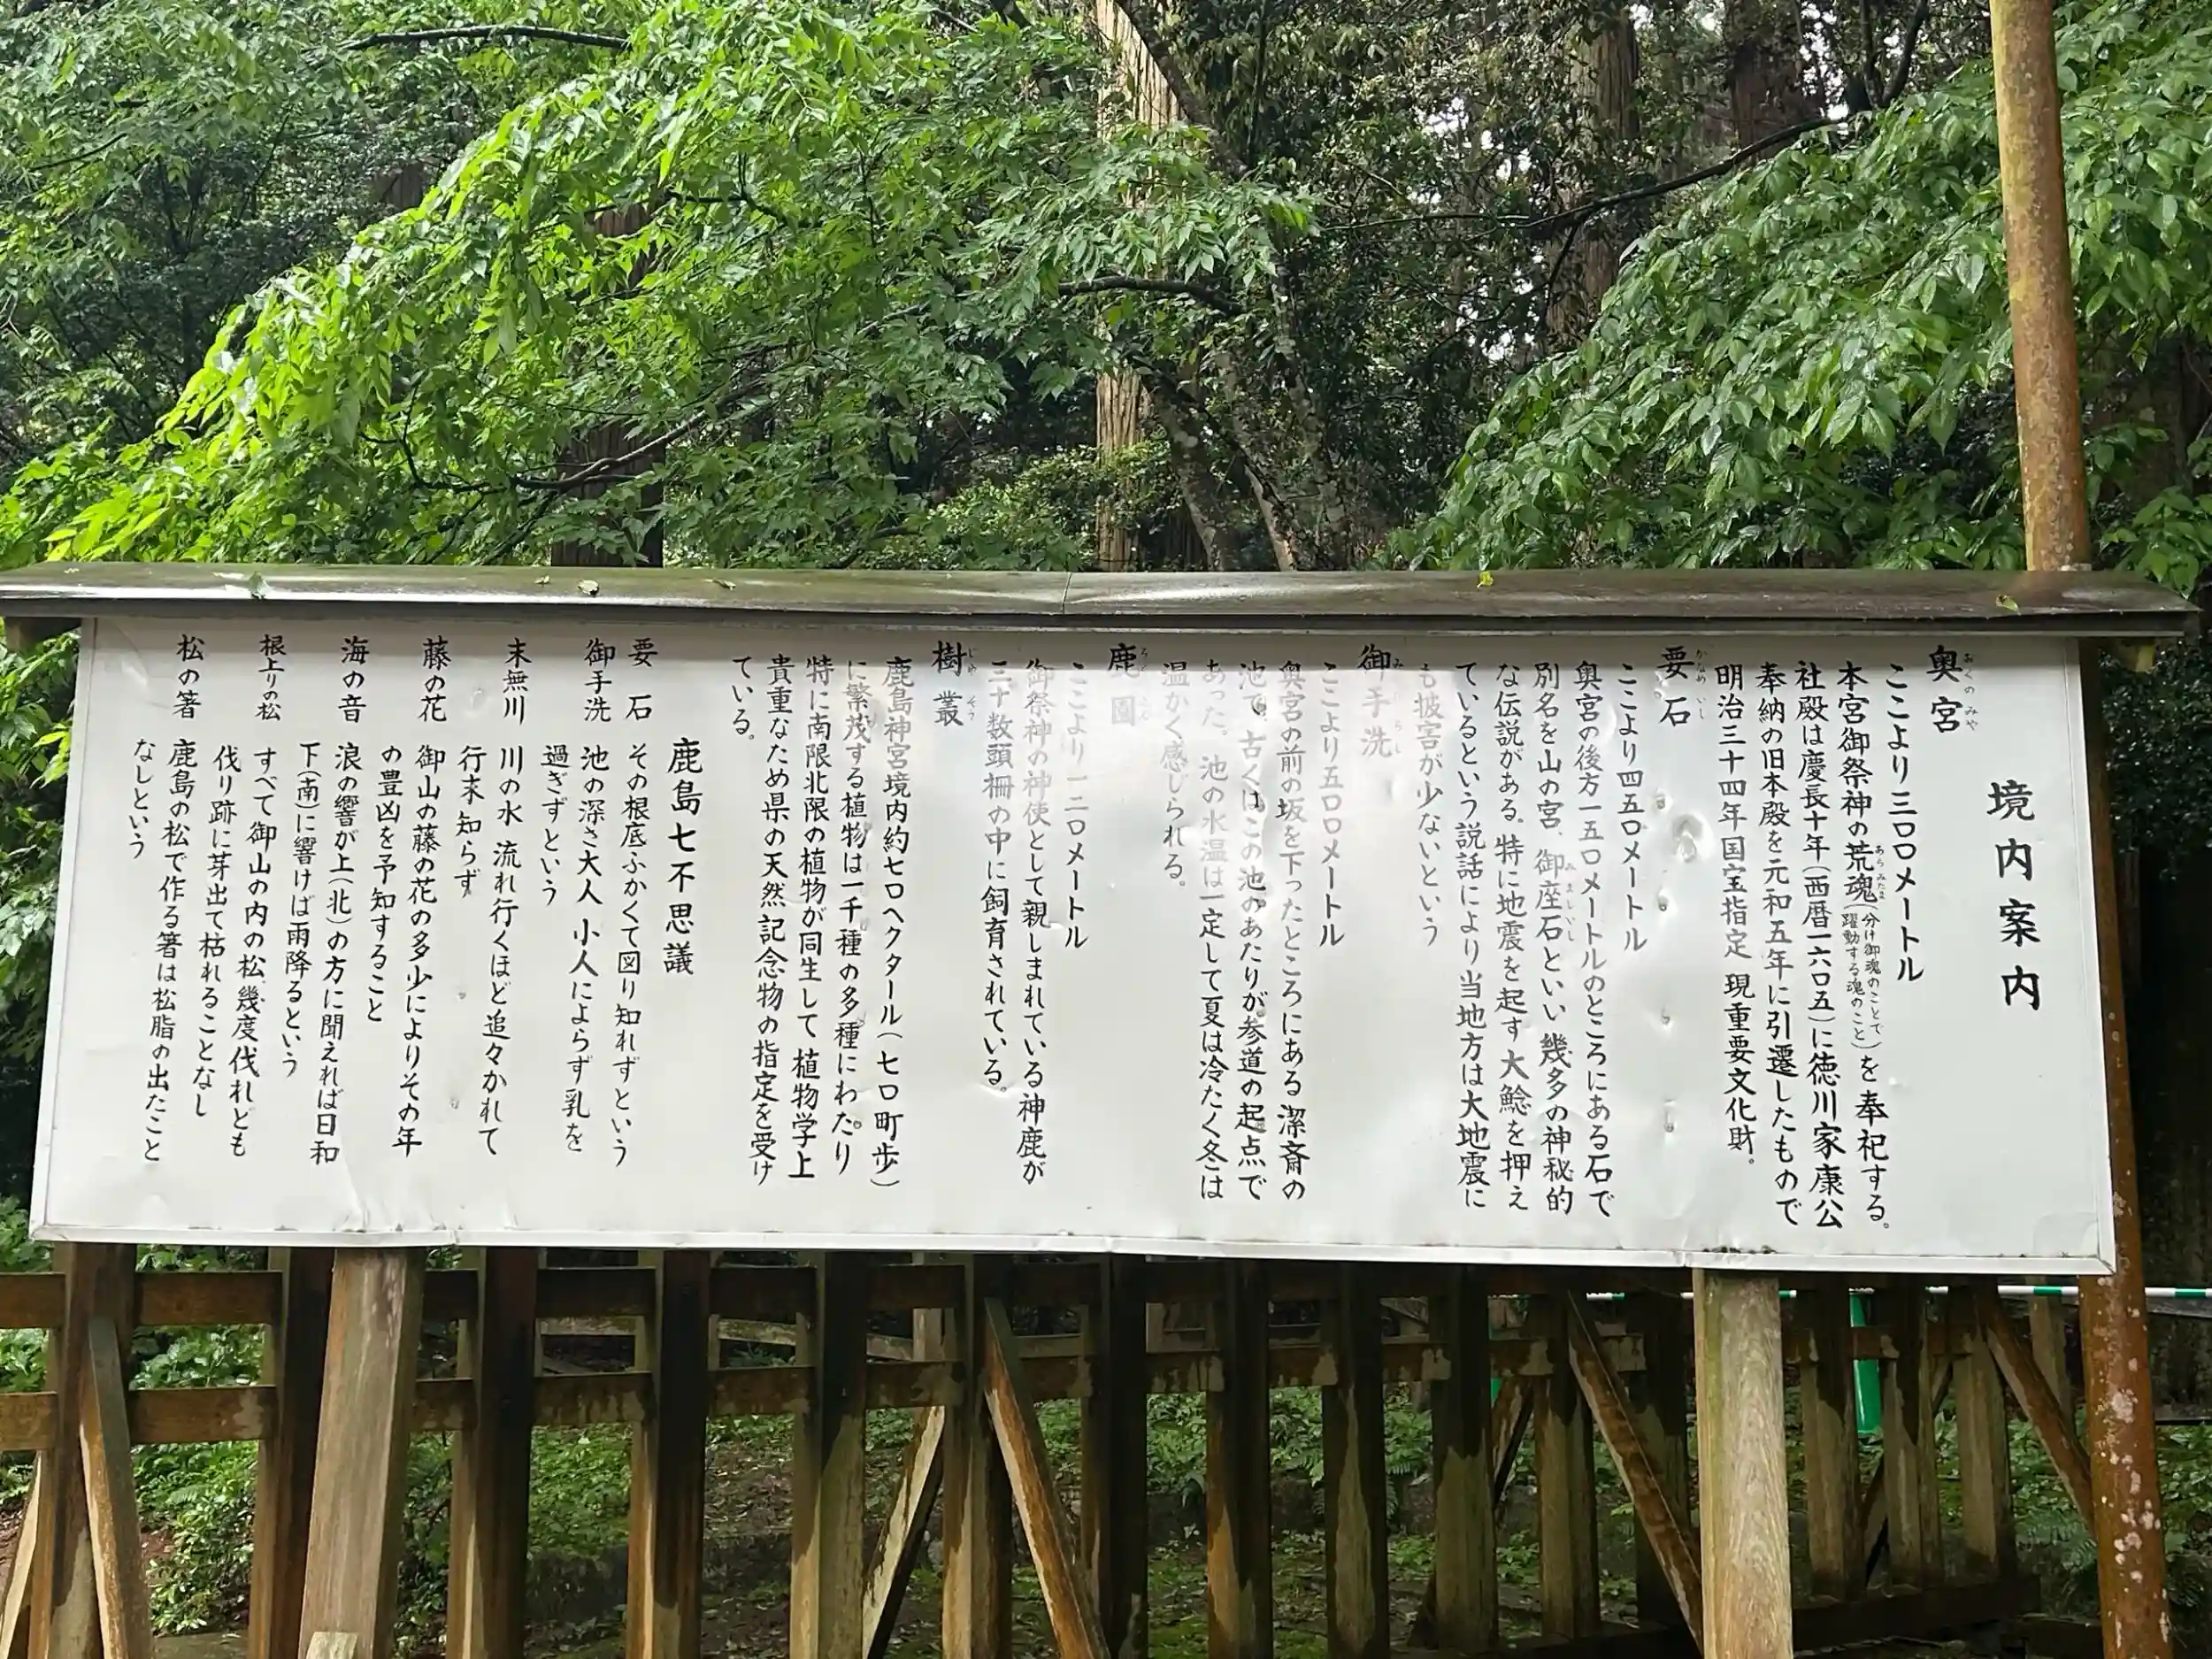 境内案内
奥宮
ここより三〇〇メートル
本宮御祭神の荒魂(分け御魂のことで躍動する魂のこと)を奉祀する。
社殿は慶長十年(西暦一六〇五)に徳川家康公
奉納の旧本殿を元和五年に引遷したもので
明治三十四年国宝指定 現重要文化財。
要石
ここより四五〇メートル
奥宮の後方一五〇メートルのところにある石で
別名を山の宮、御座石といい幾多の神秘的
な伝説がある。特に地震を起す大鯰を押え
ているという説話により当地方は大地震に
も披害が少ないという
御手洗
ここより五〇〇メートル
奥宮の前の坂を下ったところにある潔斎の
池で、古くはこの池のあたりが参道の起点で
あった。池の水温は一定して夏は冷たく冬は
温かく感じられる。
鹿園
ここより一二〇メートル
御祭神の神使として親しまれている神鹿が
三十数頭柵の中に飼育されている。
樹叢
鹿島神宮境内約七〇ヘクタール(七〇町歩)
に繁茂する植物は一千種の多種にわたり
特に南限北限の植物が同生して植物学上
貴重なため県の天然記念物の指定を受け
ている。
鹿島七不思議
要石 その根底ふかくて図り知れずという
御手洗 池の深さ大人 小人によらず乳を
過ぎずという
末無川 川の水 流れ行くほど追々かれて
行末知らず
藤の花 御山の藤の花の多少によりその年
の豊凶を予知すること
海の音 浪の響が上(北)の方に聞えれば日和
下(南)に響けば雨降るという
根上りの松 すべて御山の内の松幾度伐れども
伐り跡に芽出て枯れることなし
松の箸 鹿島の松で作る箸は松脂の出たこと
なしという